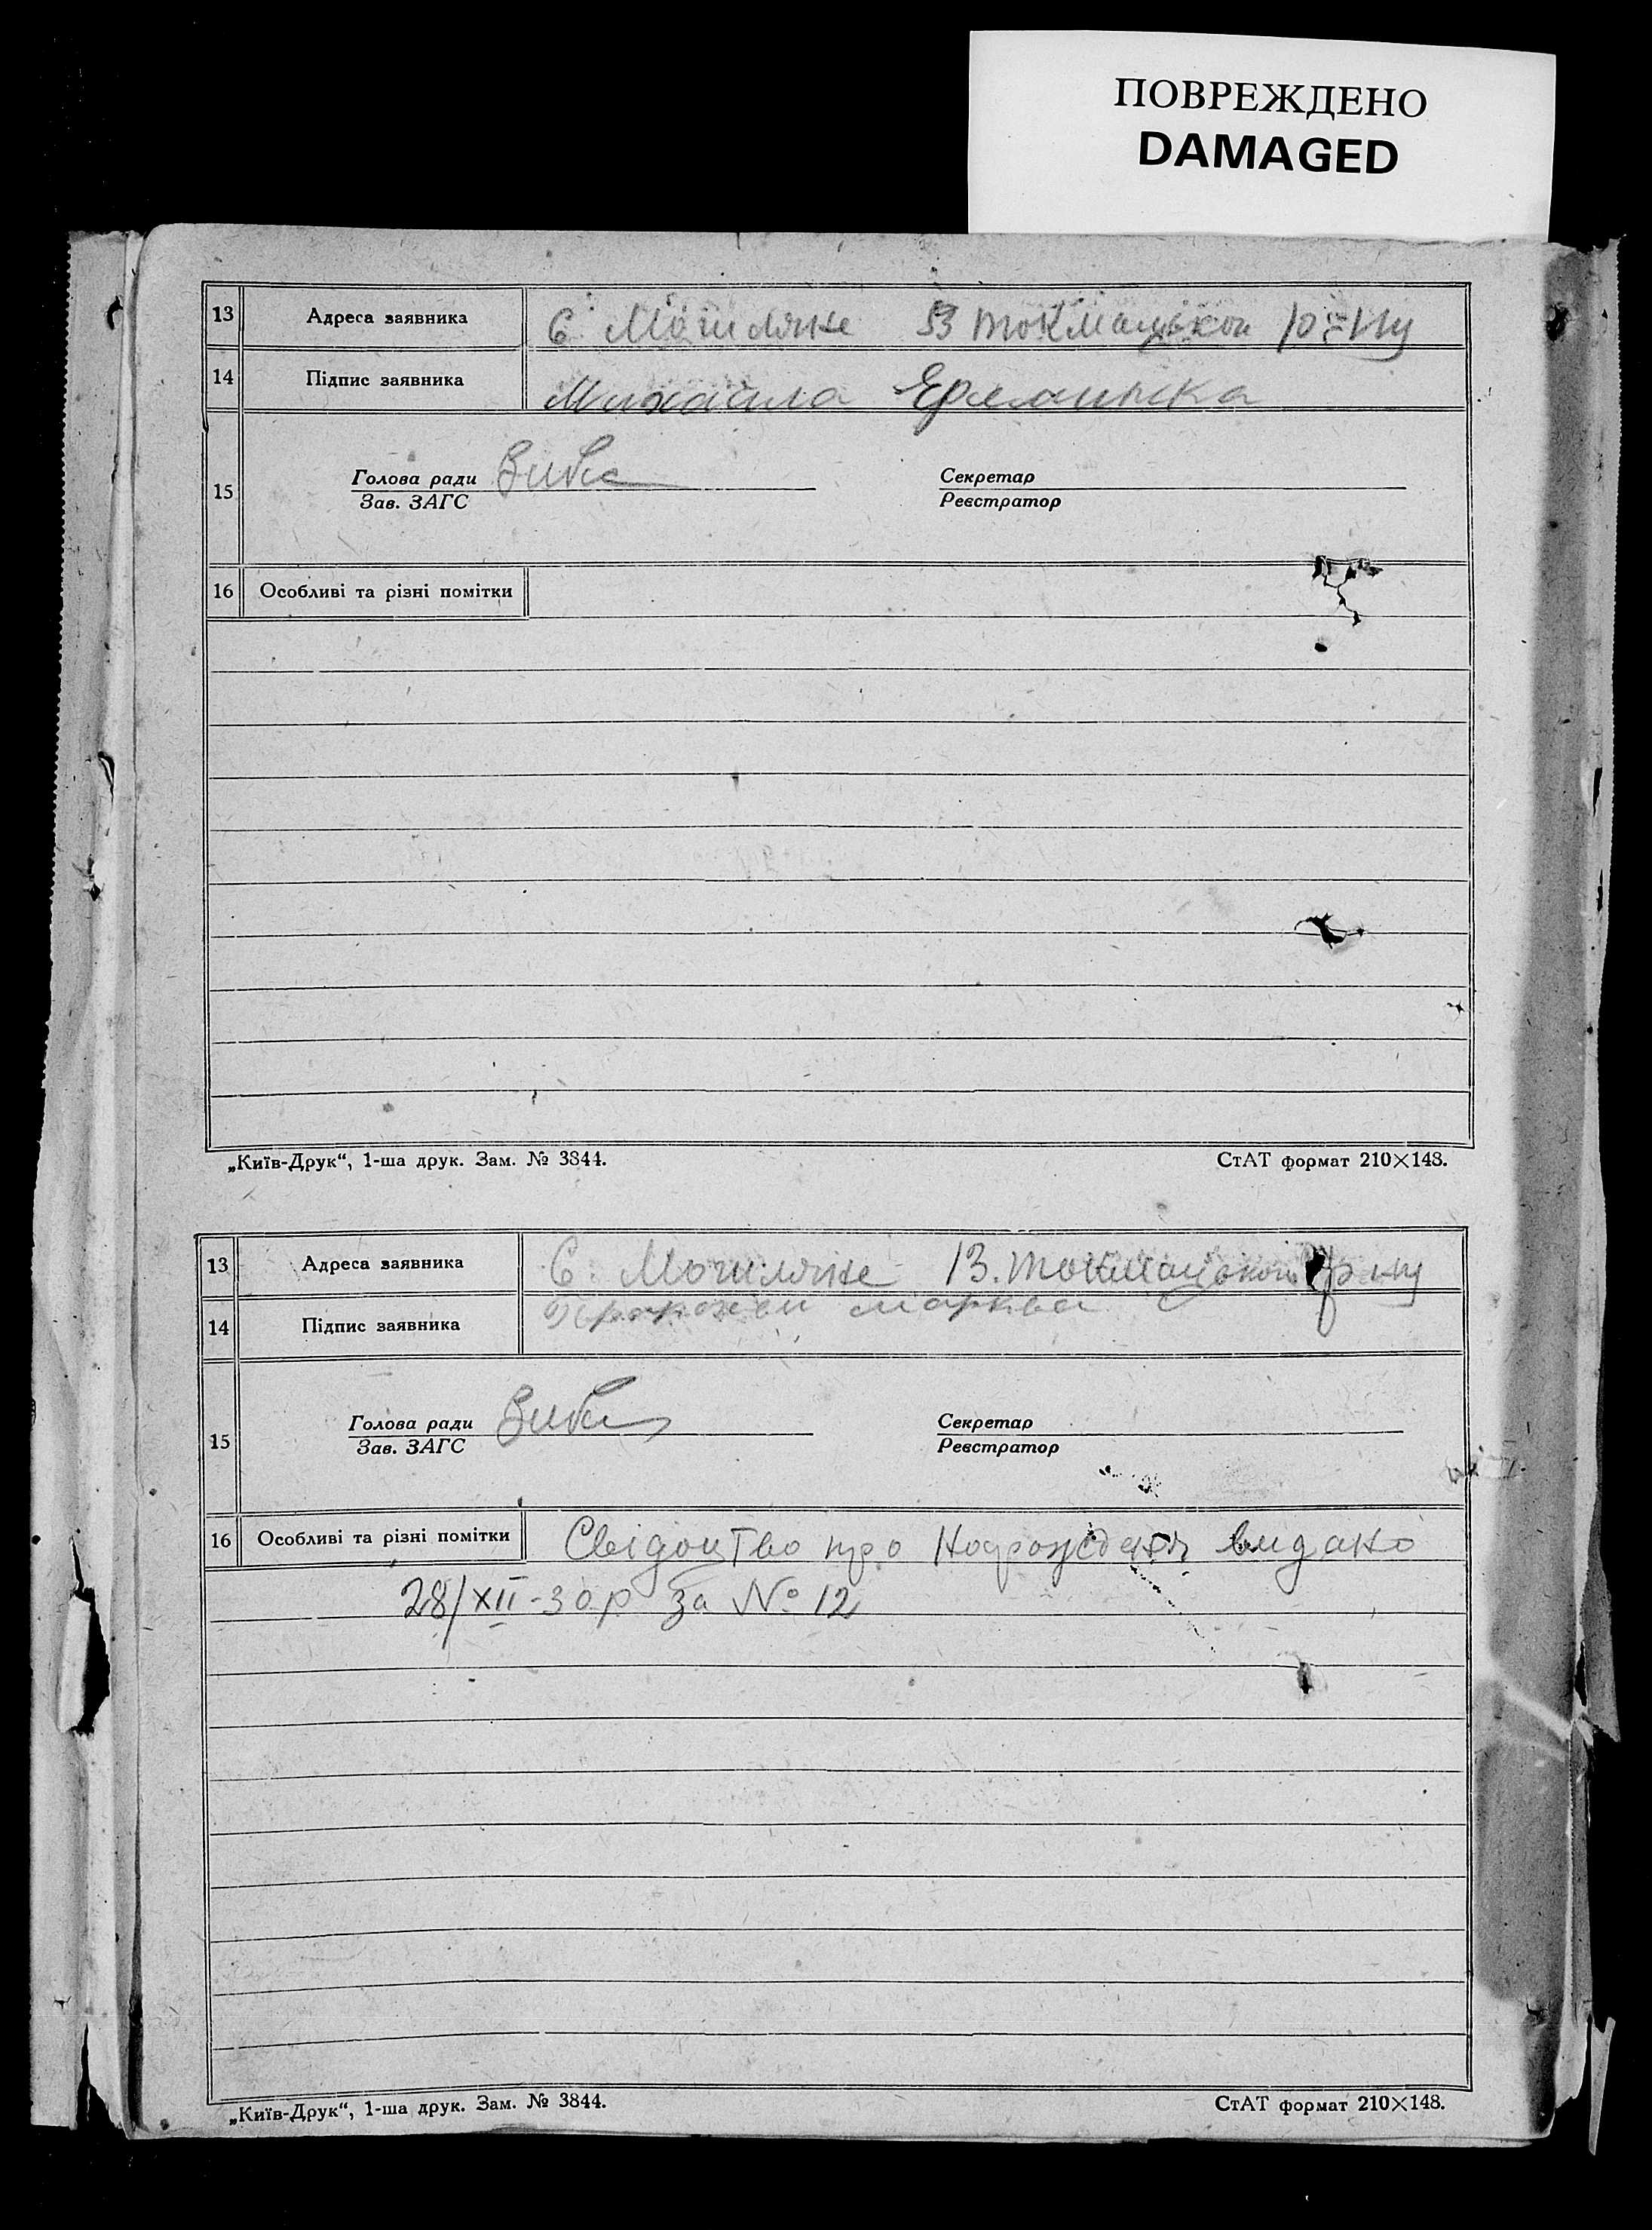 ПОВРЕЖДЕНО
DAMAGED
13 Адреса заявника с. Могиляне В Токмацькои р-ну
14 Підпис заявника Михаила
Голова ради Зиба Секретар
15
Зав. ЗАГС Реєстратор
16 Особливі та різні помітки
„Київ-Друк“, 1-ша друк. Зам. № 3844. СтАТ формат 210×148.
13 Адреса заявника с. Могиляне В. Токмацькои р-ну
14 Підпис заявника марква
Голова ради Зиба Секретар
15
Зав. ЗАГС Реєстратор
16 Особливі та різні помітки Свідоцтво про видано
28/XII-30 р за № 12
„Київ-Друк“, 1-ша друк. Зам. № 3844. СтАТ формат 210×148.